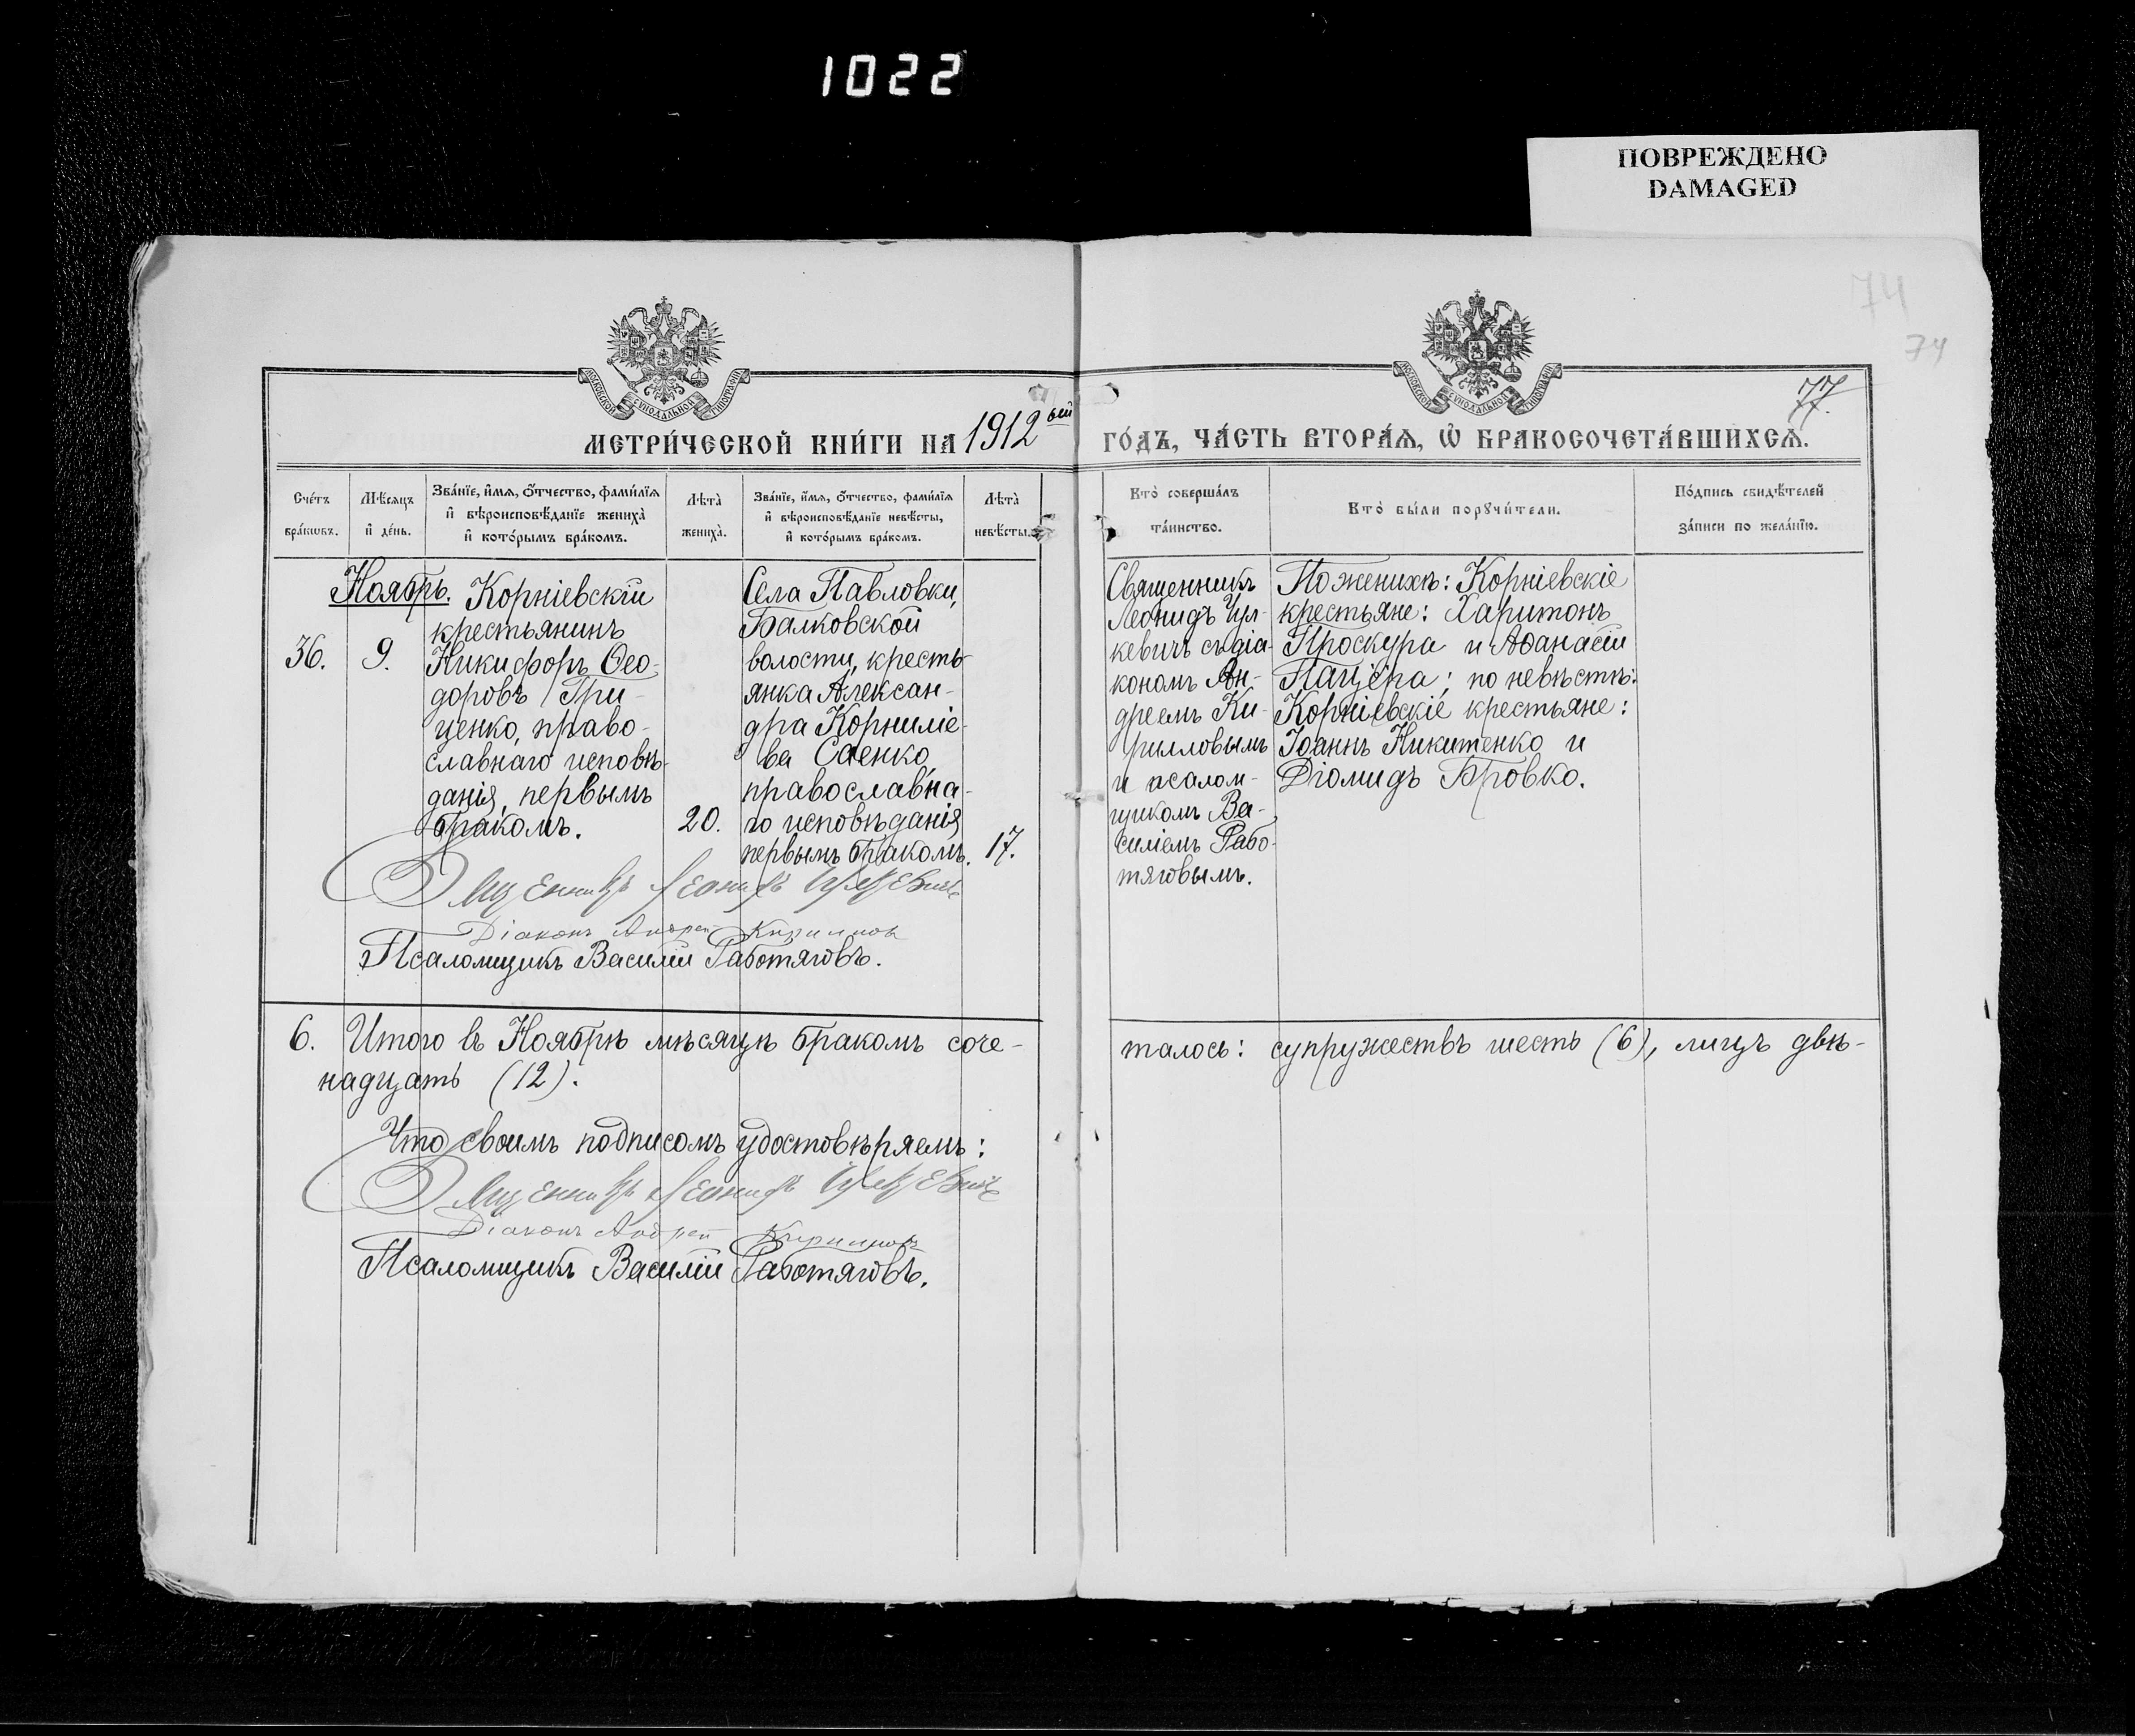 1022
ПОВРЕЖДЕНО
DAMAGED
74
74
77.
МОСКОВСКОЙ СѴНОДАЛЬНОЙ ТИПОГРАФІИ
МОСКОВСКОЙ СѴНОДАЛЬНОЙ ТИПОГРАФІИ
МЕТРИ́ЧЕСКОЙ КНИ́ГИ НА 1912ый ГО́ДЪ, ЧА́СТЬ ВТОРА́Ѧ, Ѽ БРАКОСОЧЕТА́ВШИХСѦ.
Сче́тъ
бра́кѡвъ.
Мѣ́сѧцъ
и҆ де́нь.
Зва́нїе, и҆́мѧ, ѻ҆́тчество, фами́лїѧ
и҆ вѣроисповѣ́данїе жениха̀
и҆ кото́рымъ бра́комъ.
Лѣ́та̀
жениха̀.
Зва́нїе, и҆́мѧ, ѻ҆́тчество, фами́лїѧ
и҆ вѣроисповѣ́данїе невѣ́сты,
и҆ кото́рымъ бра́комъ.
Лѣ́та̀
невѣ́сты.
Кто̀ соверша́лъ
та́инство.
Кто̀ бы́ли порꙋчи́тели.
По́дпись свидѣ́телей
за́писи по жела́нїю.
Ноябрь.
36.
9.
Корніевскій
крестьянинъ
Никифоръ Ѳео-
доровъ Гри-
ценко, право-
славнаго исповѣ-
данія, первымъ
бракомъ.
20.
Села Павловки,
Балковской
волости, кресть-
янка Алексан-
дра Корниліе-
ва Саенко,
православна-
го исповѣданія
первымъ бракомъ.
17.
Священникъ
Леонидъ Цул-
кевичъ съ діа-
кономъ Ан-
дреемъ Ки-
рилловымъ
и псалом-
щикомъ Ва-
силіемъ Рабо-
тяговымъ.
По женихѣ: Корніевскіе
крестьяне: Харитонъ
Проскура и Аѳанасій
Пацера; по невѣстѣ:
Корніевскіе крестьяне:
Іоаннъ Никитенко и
Діомидъ Бровко.
Священникъ Леонидъ Цулкевичъ
Діаконъ Андрей Кирилловъ
Псаломщикъ Василій Работяговъ.
6. Итого въ Ноябрѣ мѣсяцѣ бракомъ соче-
талось: супружествъ шесть (6), лицъ двѣ-
надцать (12).
Что своимъ подписомъ удостовѣряемъ:
Священникъ Леонидъ Цулкевичъ
Діаконъ Андрей Кирилловъ
Псаломщикъ Василій Работяговъ.